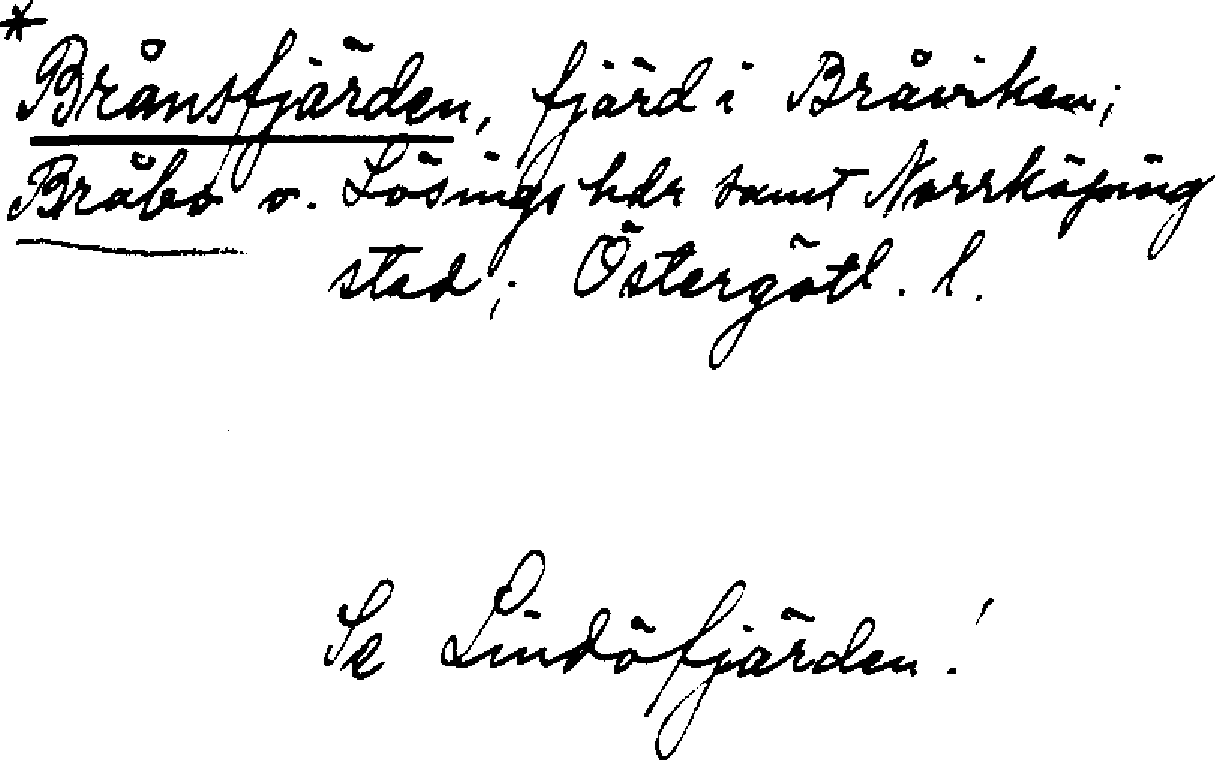 *
Brånsfjärden, fjärd i Bråviken;
Bråbo o. Lösings hdr samt Norrköping
stad; Östergötl. l.
Se Lindöfjärden!